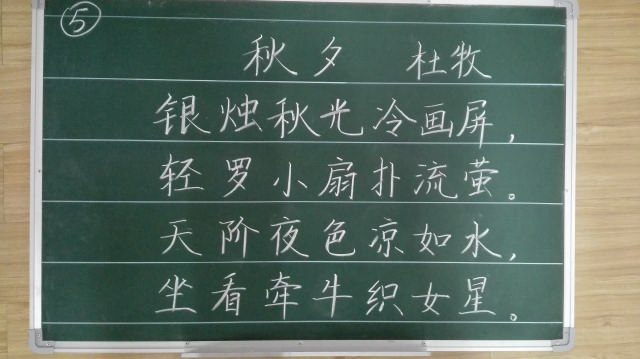 ⑤
秋夕 杜牧
银烛秋光冷画屏,
轻罗小扇扑流萤。
天阶夜色凉如水,
坐看牵牛织女星。